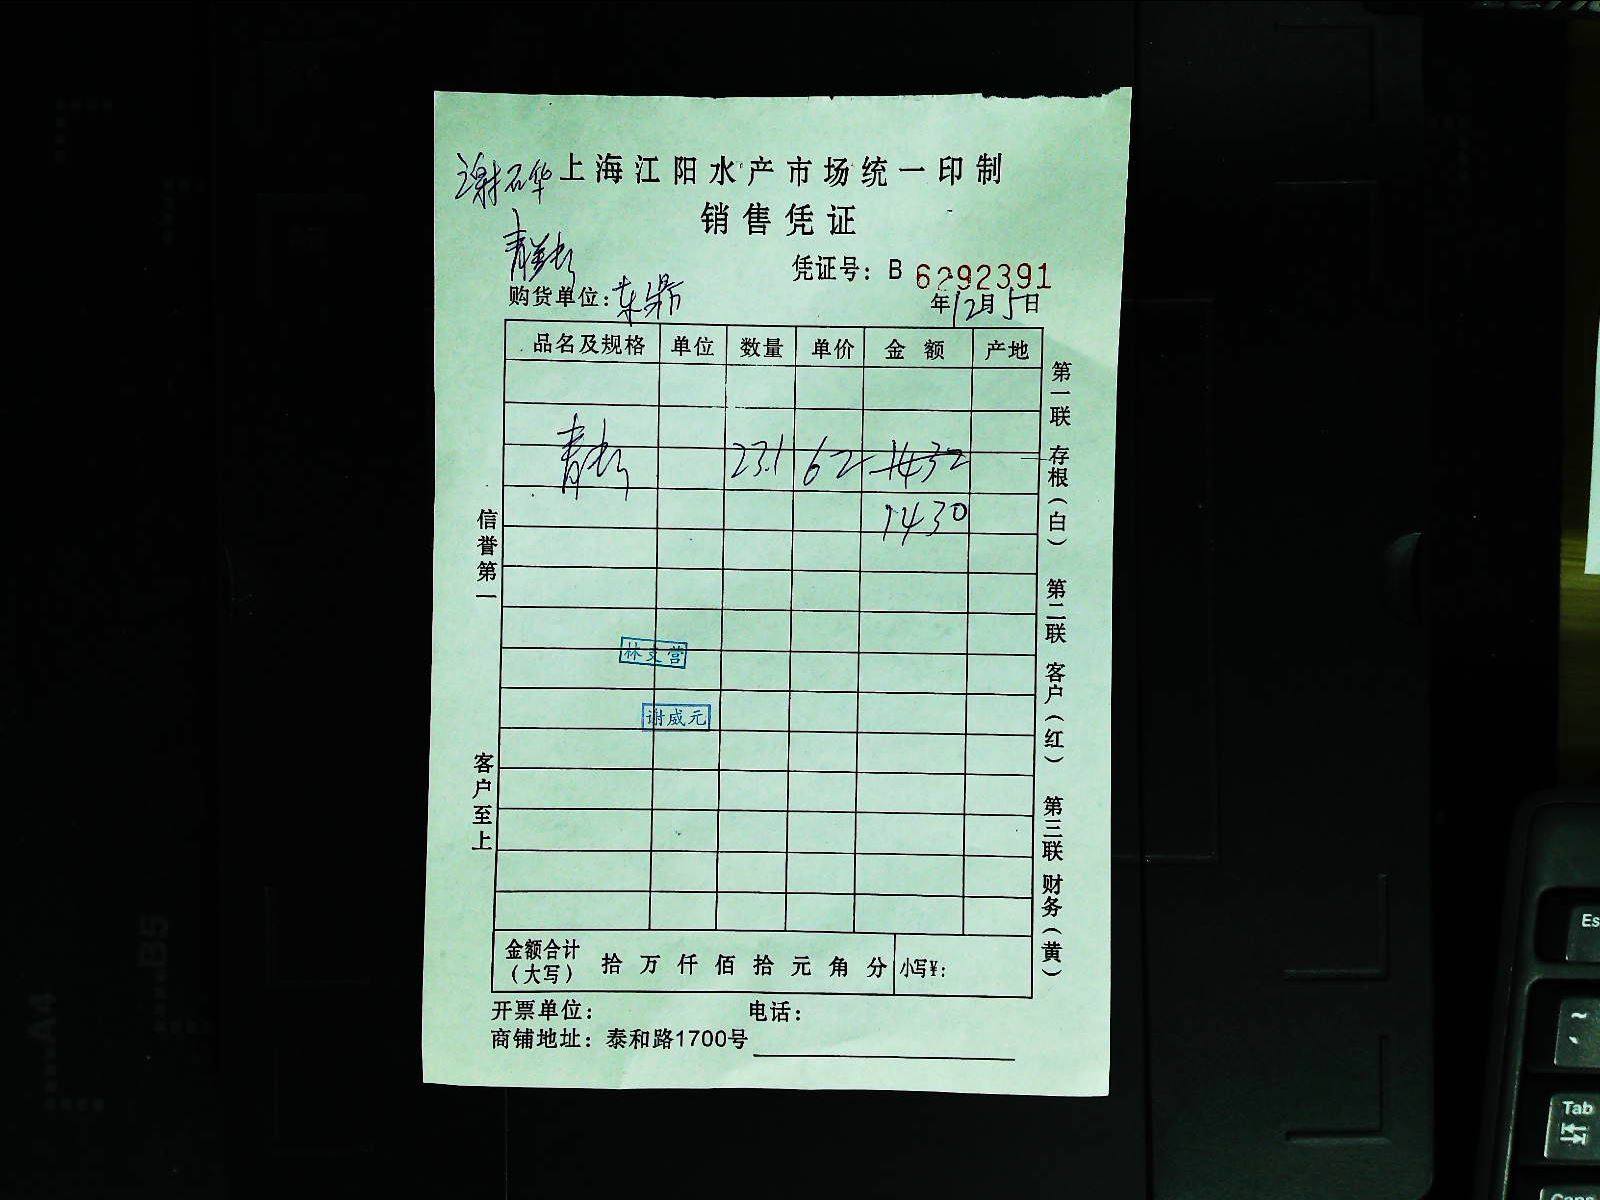 谢石华
上海江阳水产市场统一印制
销售凭证
凭证号：B 6292391
购货单位：东 年12月5日
品名及规格 单位 数量 单价 金额 产地
23.1 62 1432
1430
林文营
谢威元
信誉第一
客户至上
第一联 存根（白） 第二联 客户（红） 第三联 财务（黄）
金额合计（大写） 拾 万 仟 佰 拾 元 角 分 小写¥：
开票单位： 电话：
商铺地址：泰和路1700号
A4
B5
Es
~
Tab
Caps